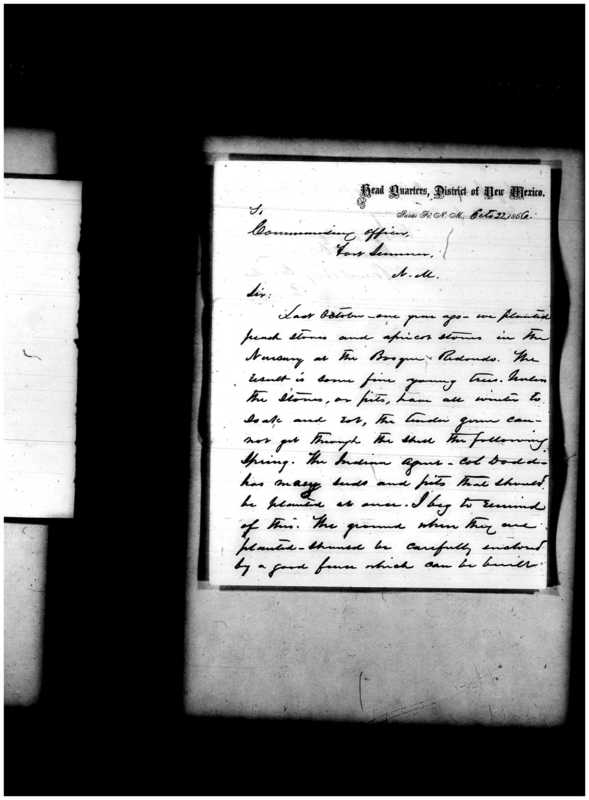 Head Quarters, District of New Mexico.
Santa Fe, N. M., Oct. 22, 1866.
To
Commanding Officer,
Fort Sumner,
N. M.
Sir:
Last October—one year ago—we planted
peach stones and apricot stones in the
Nursery at the Bosque Redondo. The
result is some fine young trees. Unless
the stones, or pits, have all winter to
soak and rot, the tender germ can-
not get through the shell the following
Spring. The Indian Agent—Col Dodd—
has many seeds and pits that should
be planted at once. I beg to remind
of this. The ground when they are
planted—should be carefully enclosed
by a good fence which can be built